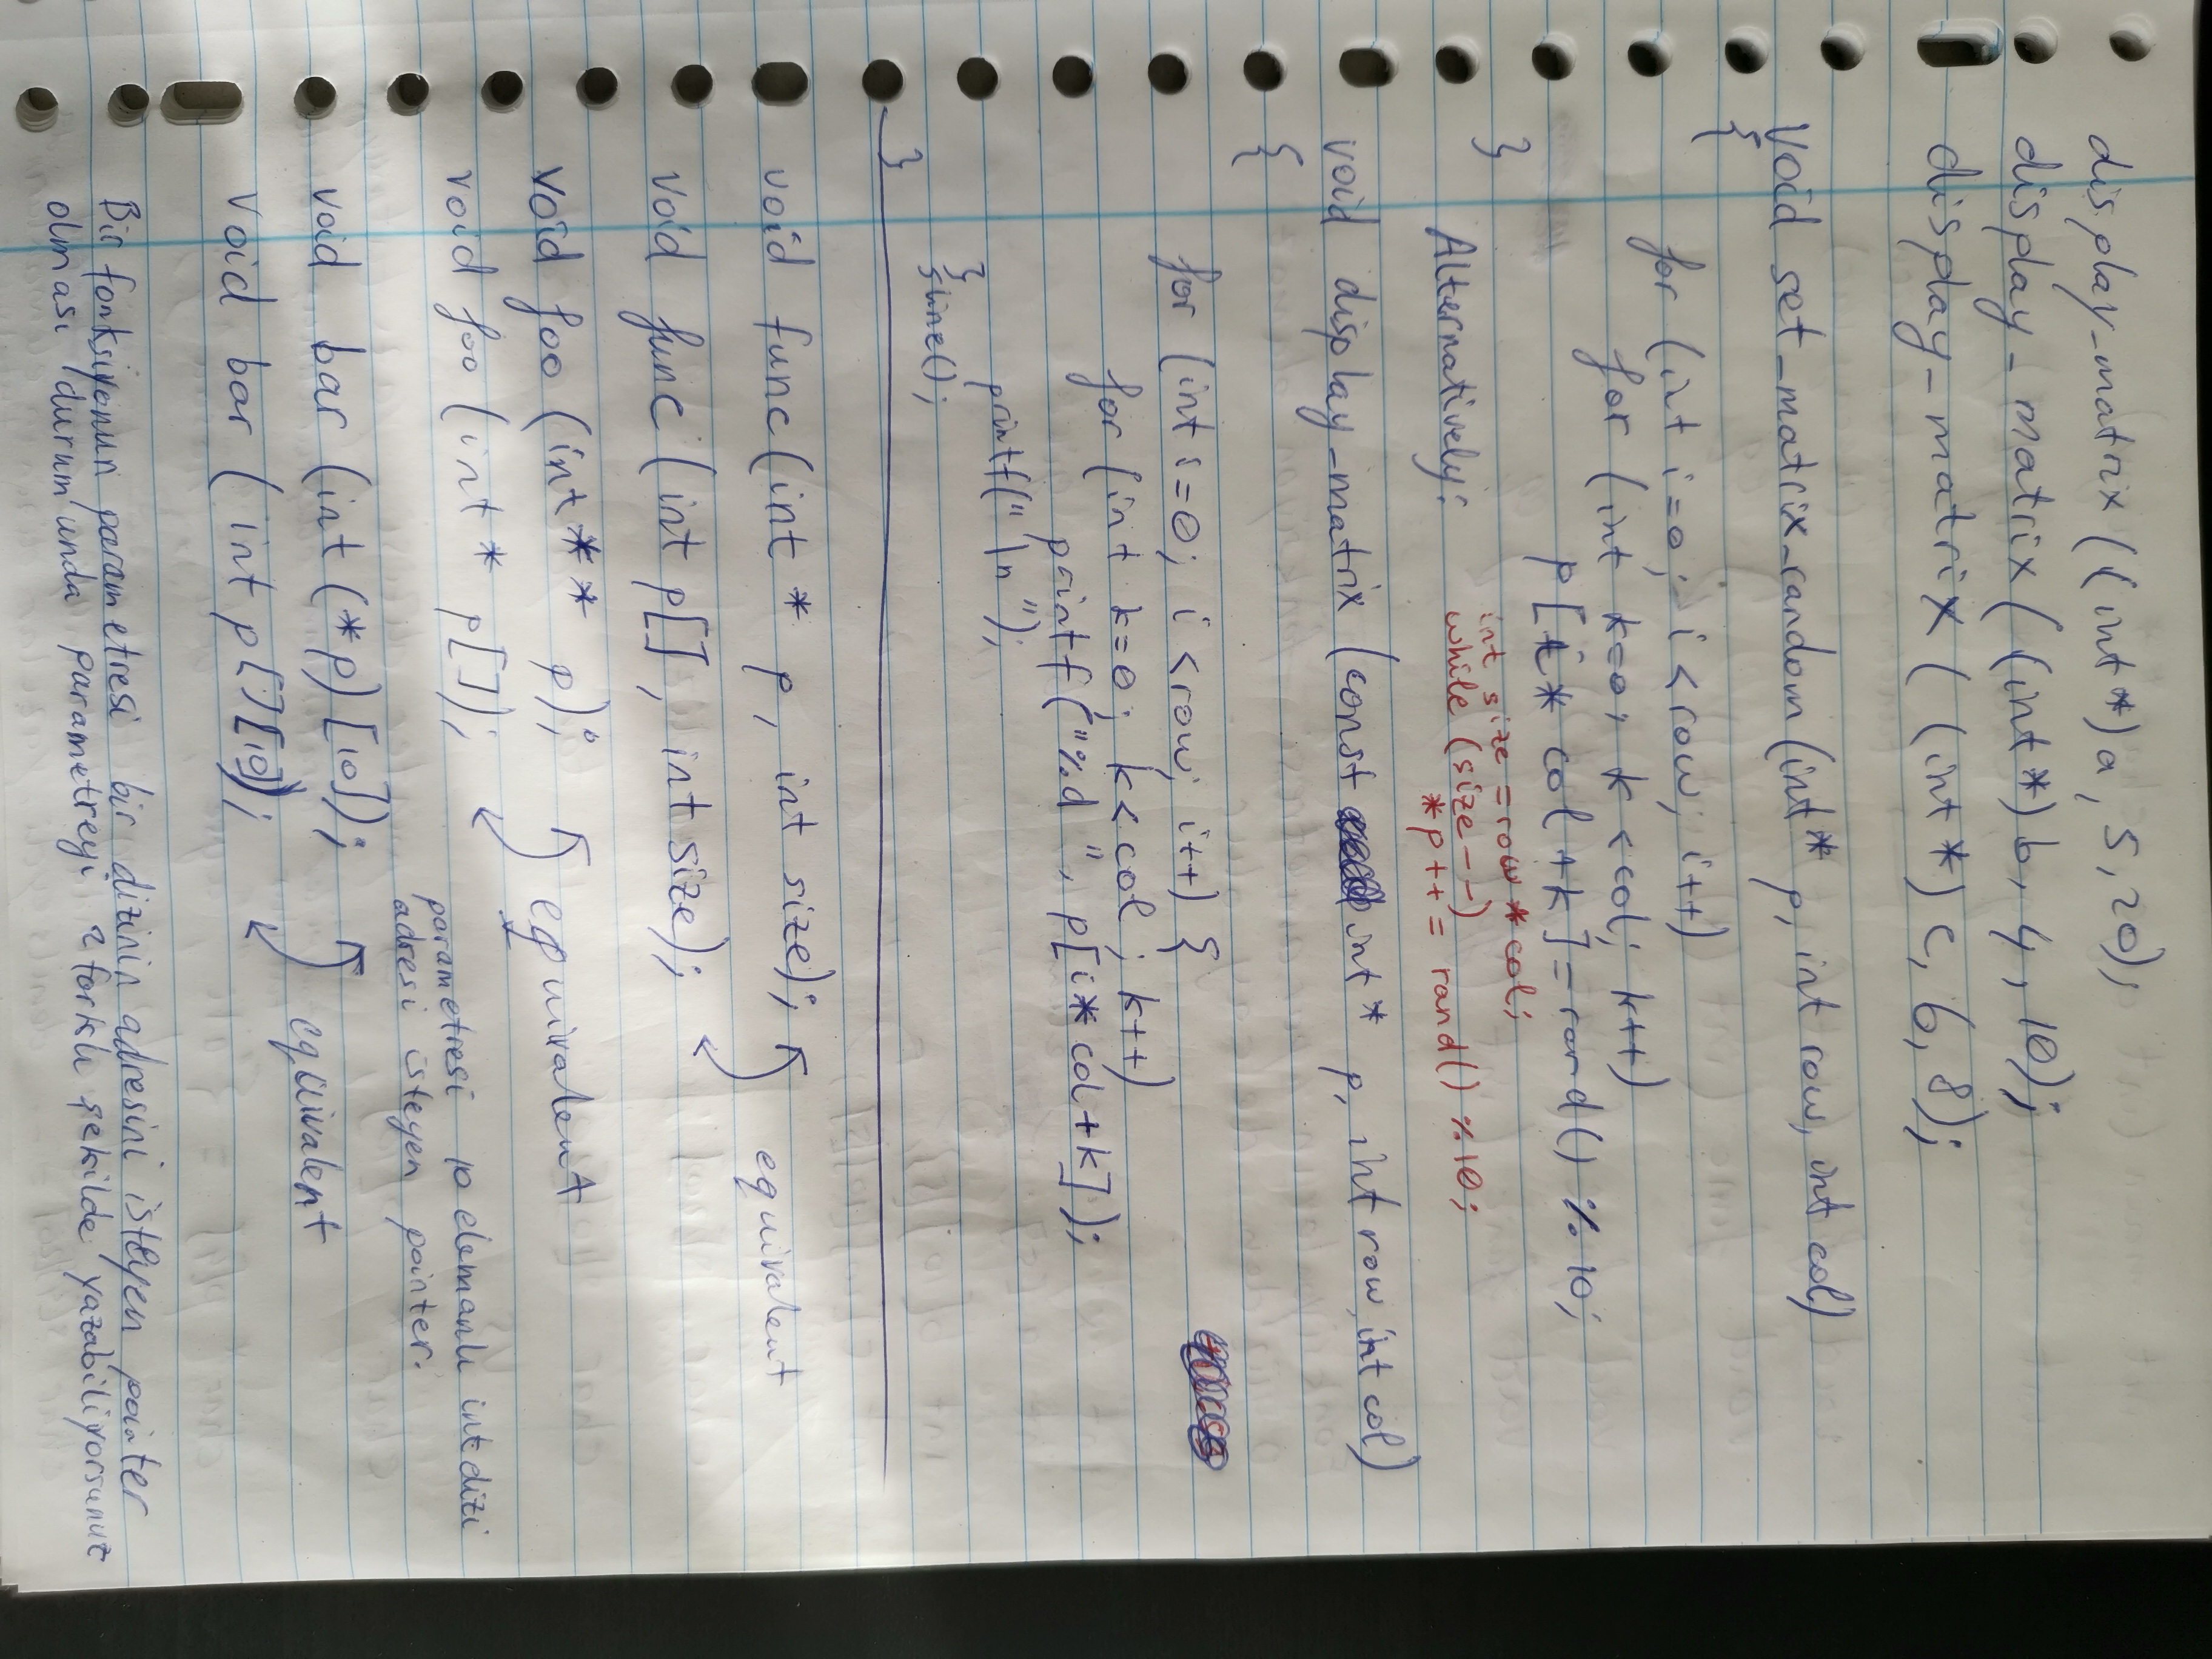 display_matrix ((int*)a, 5,20);
display_matrix ((int*)b, 4, 10);
display_matrix ((int*) c, 6, 8);
void set_matrix_random (int* p, int row, int col)
{
for (int i=0; i<row; i++)
for (int k=0; k<col; k++)
p[i* col +k]=rand() % 10;
}
int size =row*col;
Alternatively: while (size--)
*p++= rand() %10;
void display_matrix (const int* p, int row, int col)
{
for (int i=0; i<row; i++) {
for (int k=0; k<col; k++)
printf("%d ", p[i*col+k]);
printf("\n");
}
sline();
}
void func(int * p, int size);
equivalent
void func (int p[], int size);
void foo (int** p);
equivalent
void foo (int* p[]);
parametresi 10 elemanlı int dizi
adresi isteyen pointer.
void bar (int (*p) [10]);
equivalent
void bar (int p[][10]);
Bir fonksiyonun parametresi bir dizinin adresini isteyen pointer
olması durumunda parametreyi 2 farklı şekilde yazabiliyorsunuz